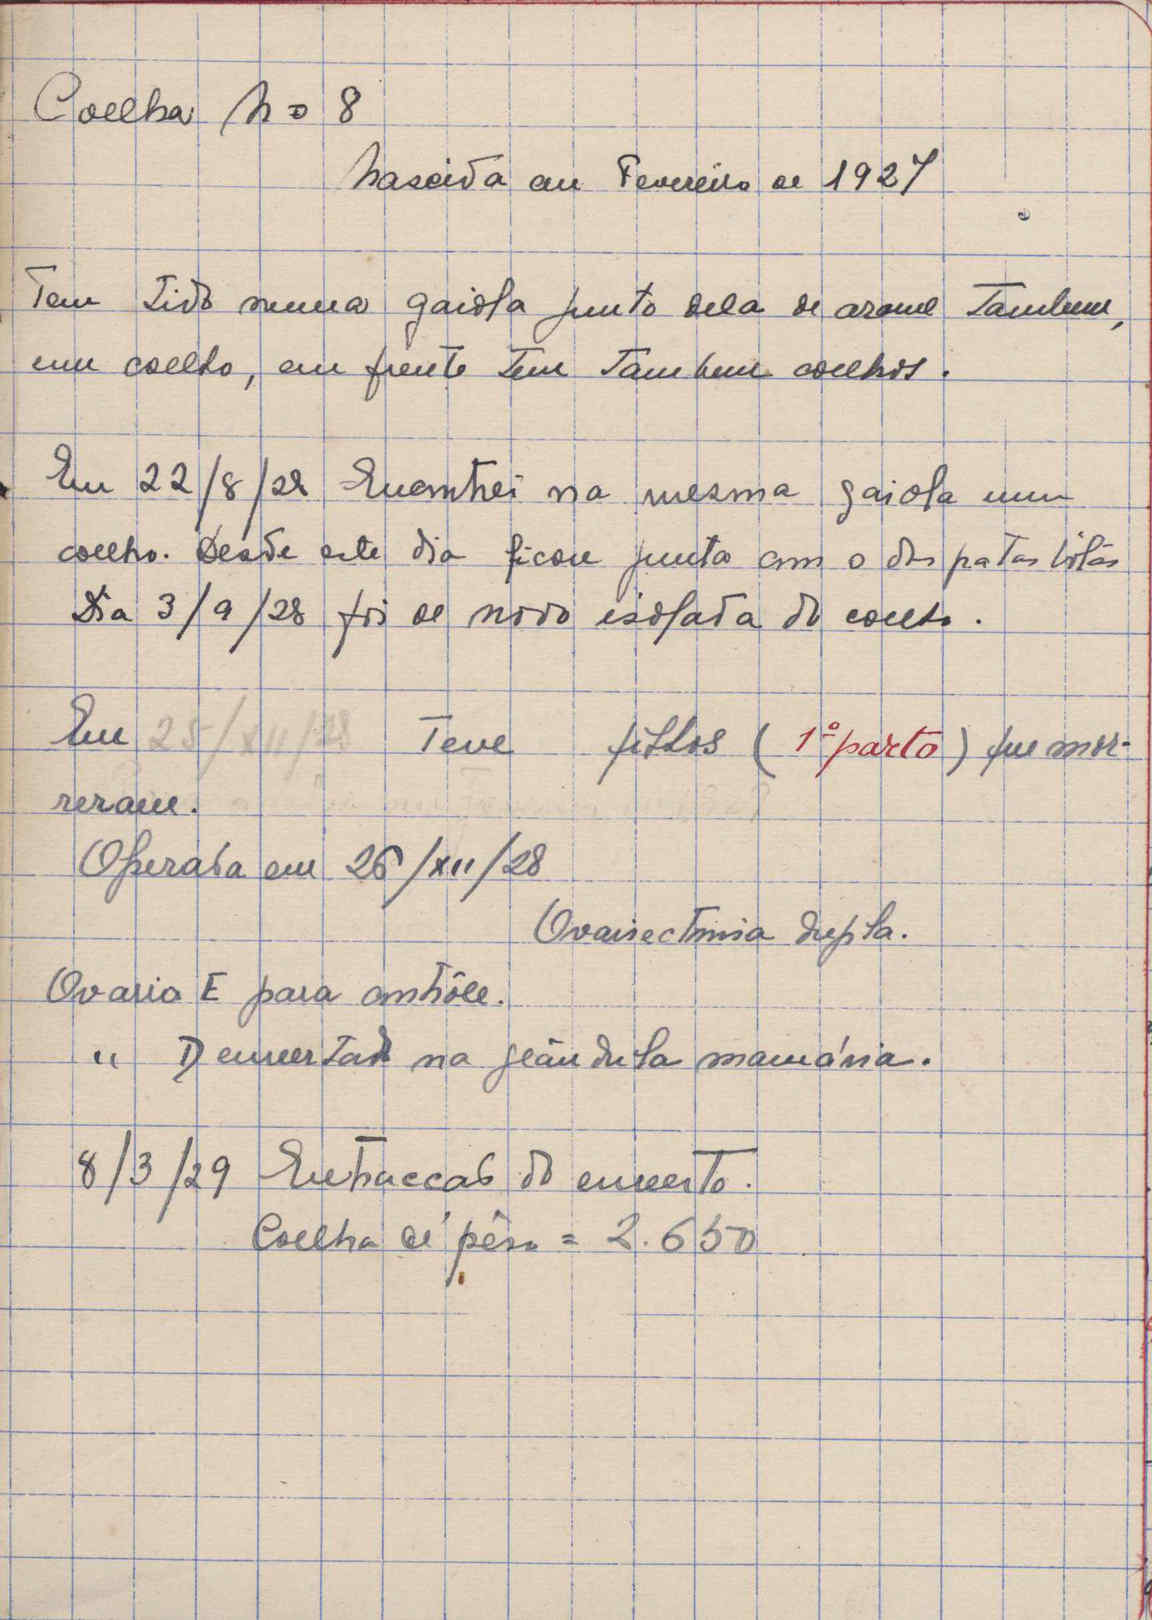 Coelha No 8
Nascida em Fevereiro de 1927
Tem tido numa gaiola junto dela de arame tambem,
um coelho, em frente tem tambem coelhos.
Em 22/8/28 Encontrei na mesma gaiola um
coelho. Desde este dia ficou junta com o das patas
Dia 3/9/28 foi de novo isolada do coelho.
Em 25/XII/28 Teve filhos (1º parto) que mor-
reram.
Operada em 26/XII/28
Ovariectomia dupla.
Ovario E para contrôle.
" D enxertado na glândula mamária.
8/3/29 Extraccão do enxerto.
Coelha pêso = 2.650